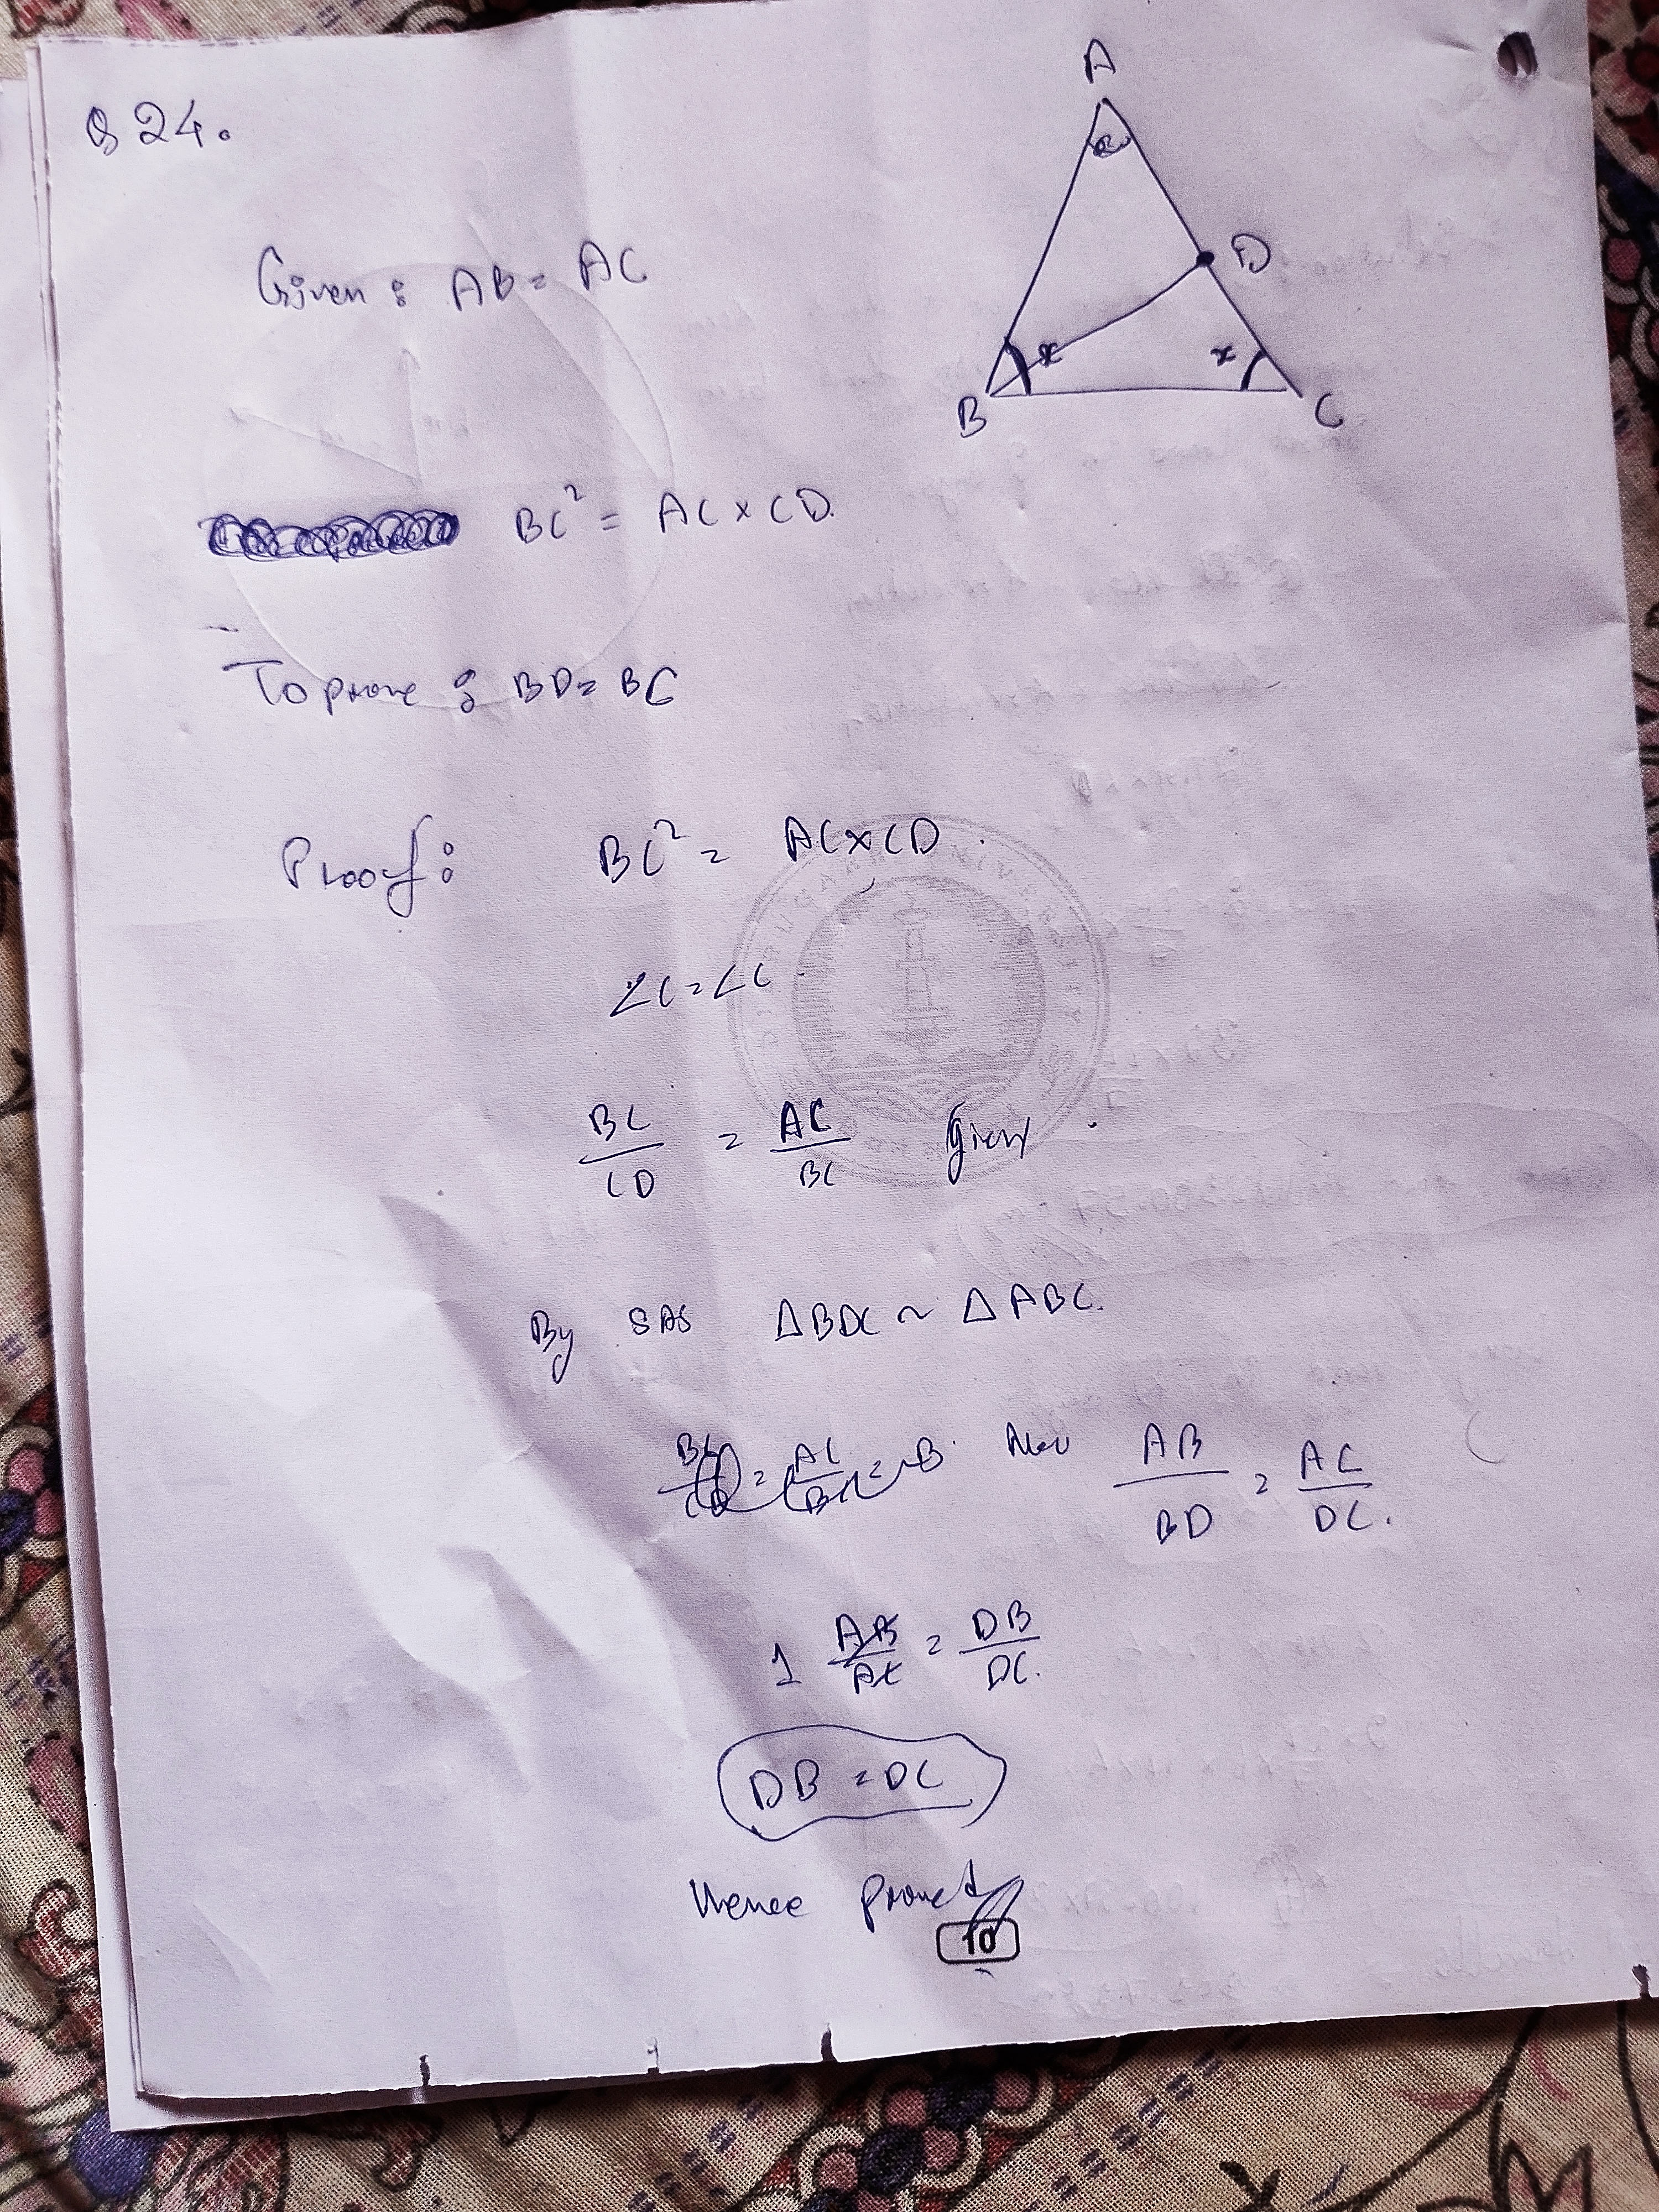 Q 24.
A
D
x x
B C
Given : AB = AC
BC² = AC × CD.
To prove : BD = BC
Proof : BC² = AC × CD.
∠C = ∠C.
BC/CD = AC/BC given.
By SAS ΔBDC ~ ΔABC.
Now AB/BD = AC/DC.
1 AB/AC = DB/DC.
DB = DC
Hence proved
10